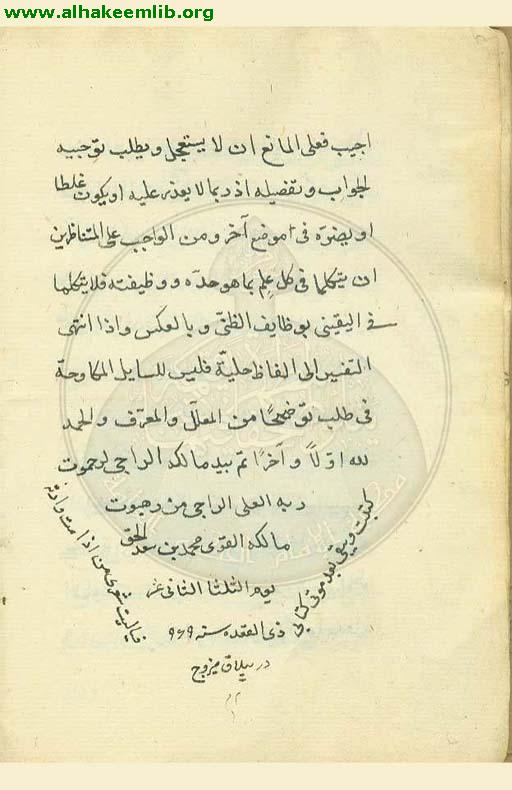 www.alhakeemlib.org
اجيب فعلى المانع ان لا يستعجل ويطلب توجيه
الجواب وتفصيله اذ ربما لا يعذر عليه او يكون غلطا
او يضره فى موضع آخر ومن الواجب على المتناظرين
ان يتكلما فى كل علم بما هو حده ووظيفته فلا يتكلما
فى اليقينى بوظايف الظنى وبالعكس واذا انتهى
التفسير الى الفاظ جلية فليس للسايل المكاوحة
فى طلب توضيحا من المعلل والمعرف والحمد
لله اولاً وآخرًا تم بيد مالكه الراجى لرحموت
ربه العلى الراجى من رهبوت
مالكه القوى محمد بن سعد الحق
يوم الثلثا الثانى عشر
ذى القعده سنه ٩٦٩
در ييلاق
كتبت وسيبقى بعد موتى كتابى
فياليت شعرى من اذا مت